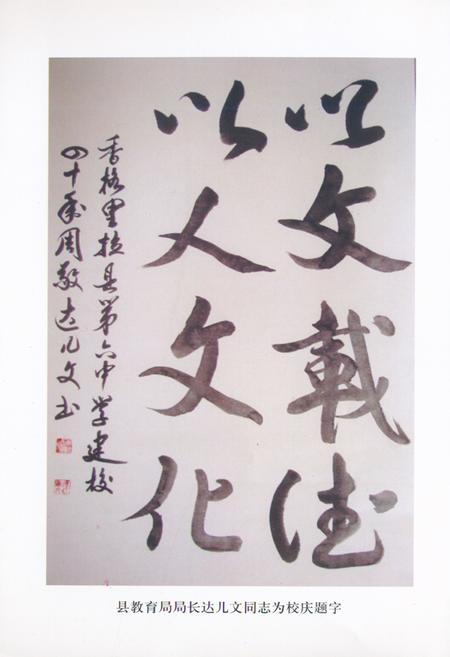 以文載德
以人文化
香格里拉县第六中学建校
四十周年 达儿文书
县教育局局长达儿文同志为校庆题字